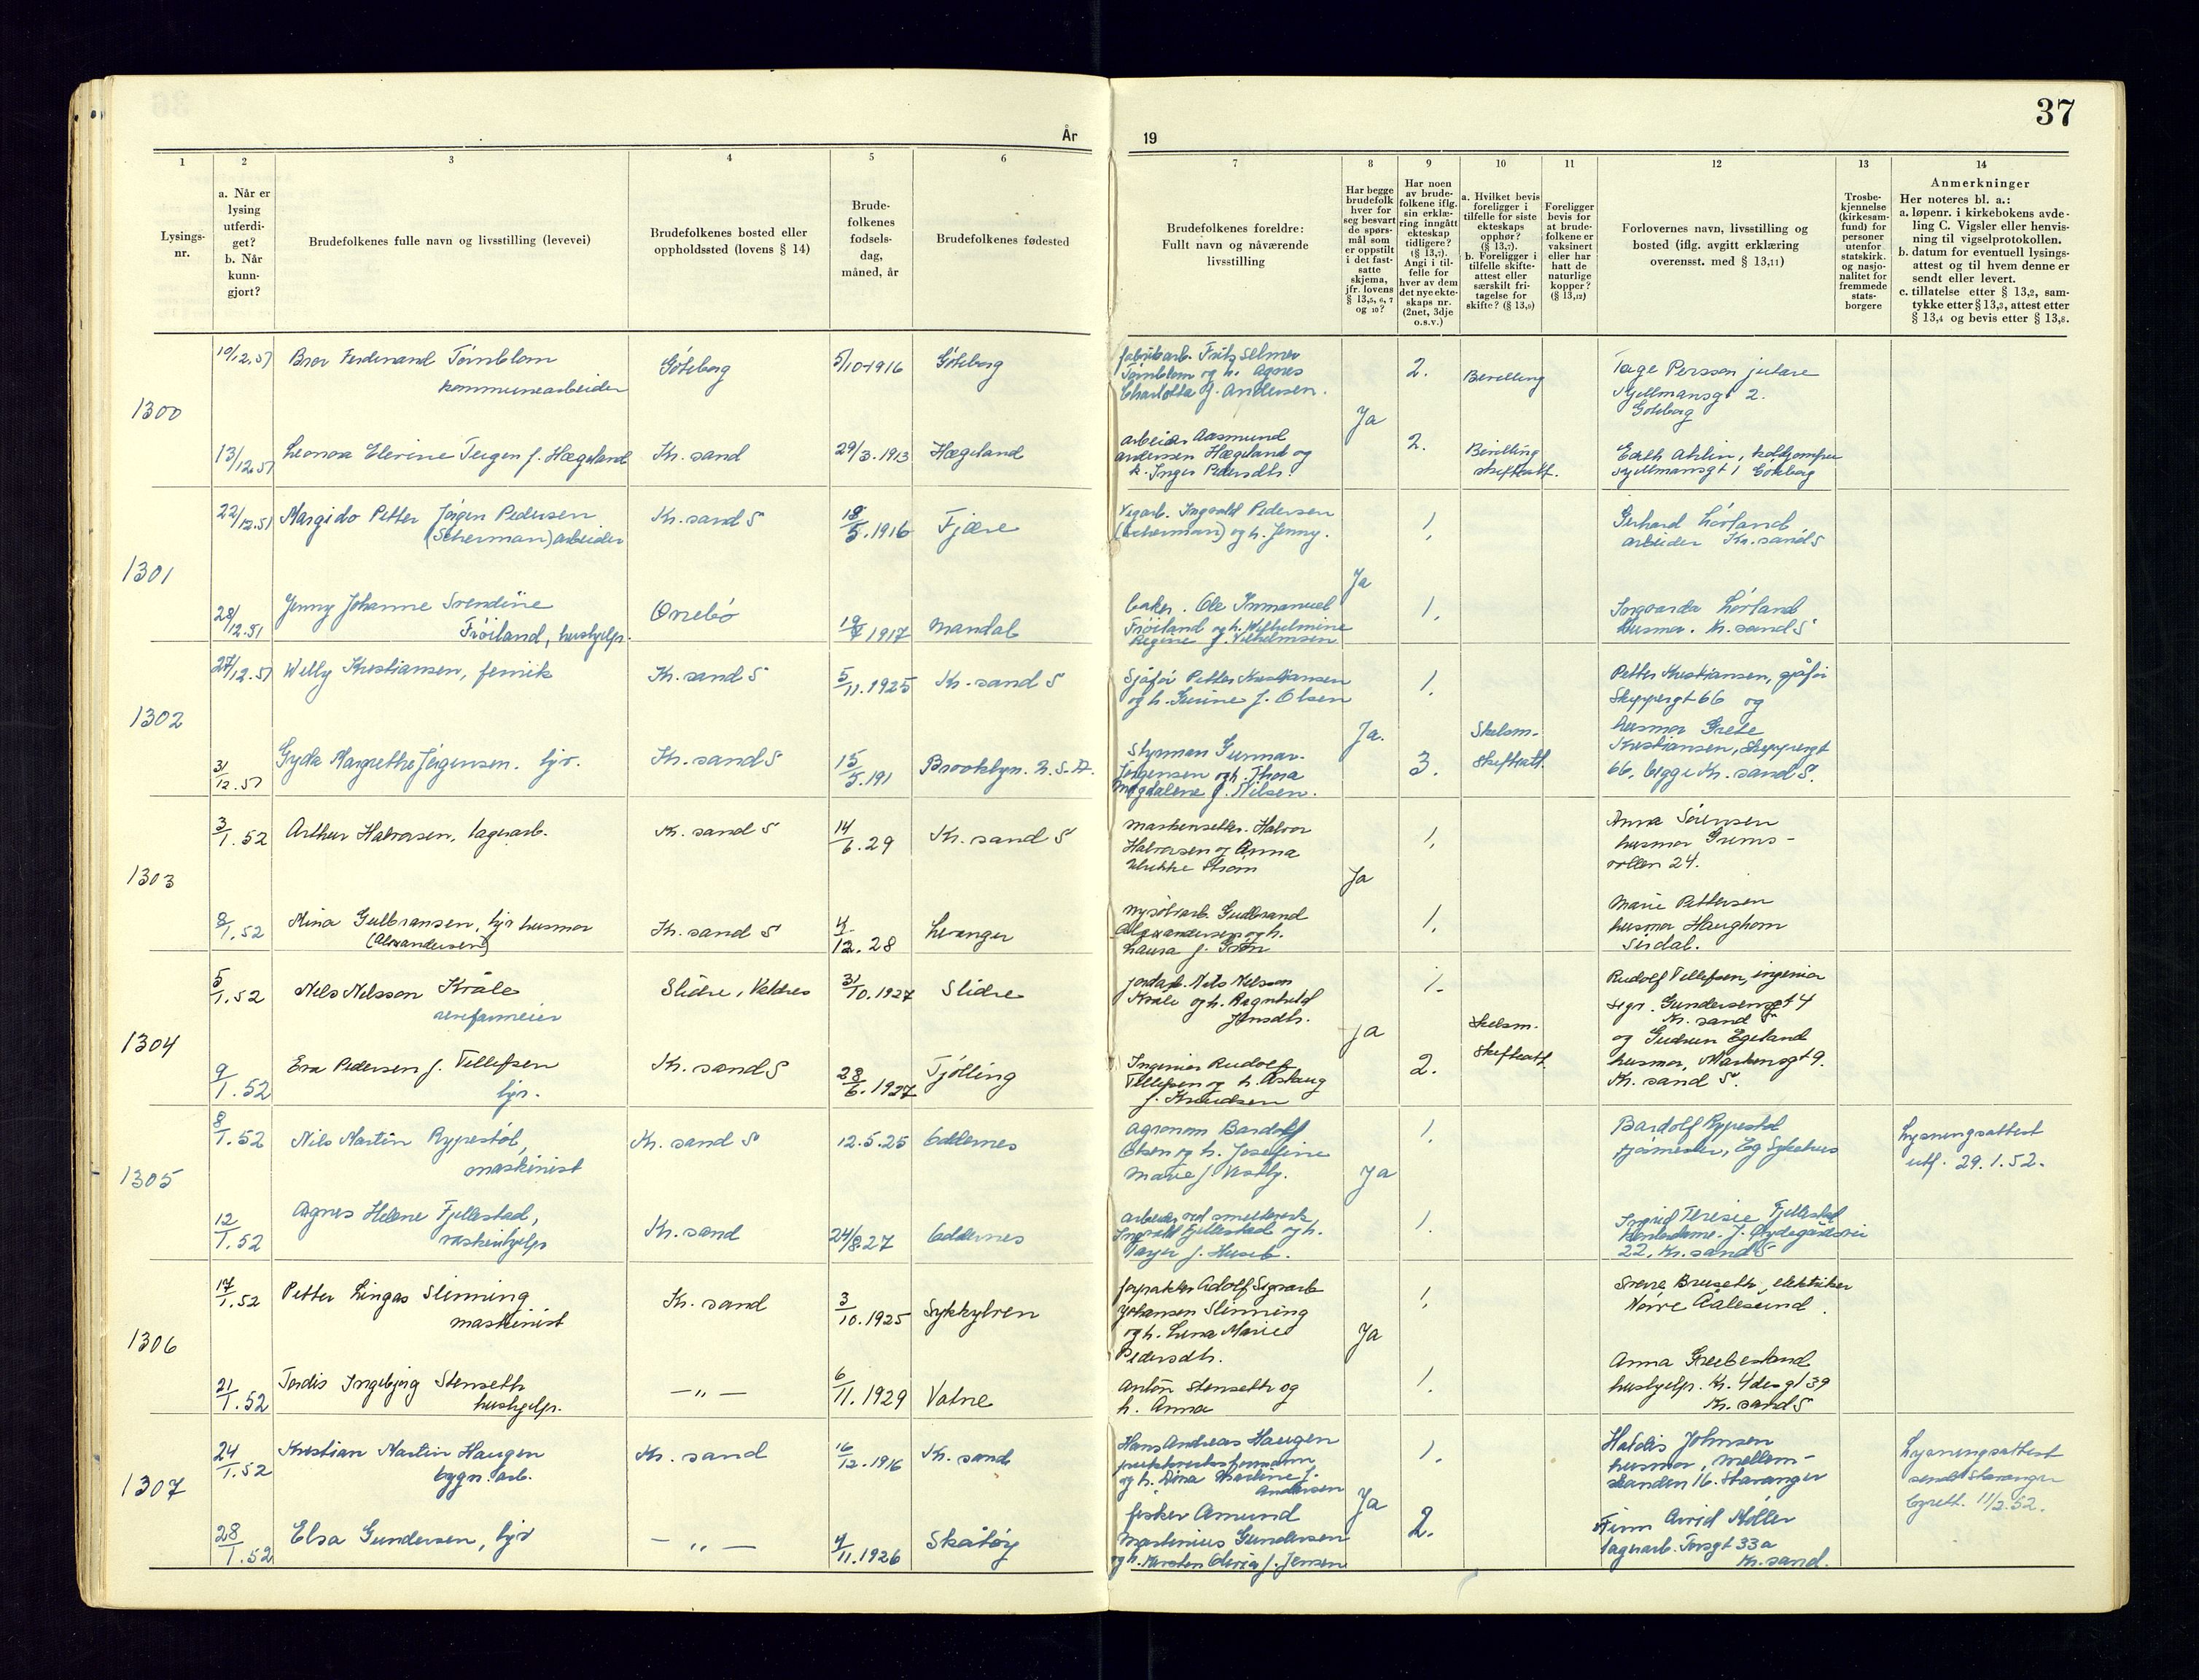 37
År
19
1
2
3
4
5
6
7
8
9
10
11
12
13
14
Lysings-
nr.
a. Når er
lysing
utferdi-
get?
b. Når
kunn-
gjort?
Brudefolkenes fulle navn og livsstilling (levevei)
Brudefolkenes bosted eller
oppholdssted (lovens § 14)
Brude-
folkenes
fødsels-
dag,
måned, år
Brudefolkenes fødested
Brudefolkenes foreldre:
Fullt navn og nåværende
livsstilling
Har begge
brudefolk
hver for
seg besvart
de spørs-
mål som
er oppstilt
i det fast-
satte
skjema,
jfr. lovens
§ 13,5, 6, 7
og 10?
Har noen
av brude-
folkene iflg.
sin erklæ-
ring inngått
ekteskap
tidligere?
(§ 13,7).
Angi i til-
felle for
hver av dem
det nye ekte-
skaps nr.
(2net, 3dje
o.s.v.)
a. Hvilket bevis
foreligger i
tilfelle for siste
ekteskaps
opphør?
(§ 13,7).
b. Foreligger i
tilfelle skifte-
attest eller
særskilt fri-
tagelse for
skifte? (§ 13,9)
Foreligger
bevis for
at brude-
folkene er
vaksinert
eller har
hatt de
naturlige
kopper?
(§ 13,12)
Forlovernes navn, livsstilling og
bosted (iflg. avgitt erklæring
overensst. med § 13,11)
Trosbe-
kjennelse
(kirkesam-
fund) for
personer
utenfor
statskirk.
og nasjo-
nalitet for
fremmede
stats-
borgere
Anmerkninger
Her noteres bl. a.:
a. løpenr. i kirkebokens avde-
ling C. Vigsler eller henvis-
ning til vigselprotokollen.
b. datum for eventuell lysings-
attest og til hvem denne er
sendt eller levert.
c. tillatelse etter § 13,2, sam-
tykke etter § 13,3, attest etter
§ 13,4 og bevis etter § 13,8.
1300
10/12.51 Bror Ferdinand Törnblom
kommunearbeider
Göteborg
5/10-1916 Göteborg
fabrikarb. Fritz Selmer
Törnblom og h. Agnes
Charlotta f. Andersen.
Ja
2. Bevilling
Tage Persson
2.
Göteborg
13/12.51 Leonora Elerine Teigen f. Hægeland
Kr. sand
29/3.1913 Hægeland
arbeider Aasmund
Andersen Hægeland og
h. Inger Pedersdtr.
2. Bevilling
skifteatt.
Ahlin,
1 Göteborg
1301
22/12.51 Margido Petter Jörgen Pedersen
(Scherman) arbeider
Kr. sand S
18/5.1916 Fjære
Vegarb. Ingvald Pedersen
(Scherman) og h. Jenny.
Ja
1.
Gerhard Lörland
arbeider Kr. sand S
28/12.51 Jenny Johanne Svendine
Fröiland, hushjelp.
Oddernes
1917 Mandal
baker. Ole Immanuel
Fröiland og h. Wilhelmine
Regine f. Vilhelmsen
1.
Lörland
husmor. Kr. sand S
1302
27/12.51 Willy Kristiansen, fenrik
Kr. sand S
5/11.1925 Kr. sand S
Sjåför Petter Kristiansen
og h. f. Olsen
Ja.
1.
Petter Kristiansen, sjåför
Skippergt 66 og
husmor Grete
Kristiansen, Skippergt
66, begge Kr. sand S.
31/12.51 Gyda Margrethe Jörgensen. hjv.
Kr. sand S
15/5.191 Brooklyn. U.S.A.
Styrman Gunnar
Jörgensen og h. Thora
Magdalene f. Nilsen.
3. Skilsm.
Skifteatt.
1303
3/1.52 Arthur Halvorsen, lagerarb.
Kr. sand S
14/6.29 Kr. sand S
Halvor
Halvorsen og Anna
Ström
Ja
1.
Anna Sörensen
husmor Grims-
vollen 24.
8/1.52 Nina Gulbransen, hjv husmor
(Alexandersen)
Kr. sand S
4/12.28 Levanger
Gudbrand
Alexandersen og h.
Laura f. Grön
1.
Marie Pettersen
husmor Haughom
Sirdal.
1304
5/1.52 Nils Nilsson Kråle
revefarmeier
Slidre, Valdres
31/10.1927 Slidre
jordarb. Nils Nilsson
Kråle og h. Ragnhild
Jonsdtr.
Ja
1.
Rudolf Tellefsen, ingeniør
Sigr. Gundersensgt 4
Kr. sand S
og Gudrun Egeland
husmor, Markensgt 9.
Kr. sand S.
9/1.52 Eva Pedersen f. Tellefsen
hjv.
Kr. sand S
28/6.1927 Tjölling
Ingeniør Rudolf
Tellefsen og h. Aslaug
f. Knudsen
2. Skilsm.
Skifteatt.
1305
8/1.52 Nils Martin Rypestöl,
maskinist
Kr. sand S
12.5.25 Oddernes
Agronom Bardolf
Olsen og h. Josefine
Marie f. Vestby.
Ja
1.
Bardolf Rypestöl
Eg Sykehus
Lysningsattest
utf. 29.1.52.
12/1.52 Agnes Helene Fjellestad,
vaskehjelp
Kr. sand
24/8.27 Oddernes
arbeider ved smelteverk
Ingvald Fjellestad og h.
f. Huseb.
1.
Ingrid Terese Fjellestad
22, Kr. sand S
1306
17/1.52 Petter Lingas Slinning
maskinist
Kr. sand
3/10.1925 Sykkylven
Adolf
Johansen Slinning
og h. Marie
Pedersdtr.
Ja
1.
Sverre Bruseth, elektriker
Nörve Aalesund.
21/1.52 Tordis Ingebjörg Stenseth
hushjelp.
— „ —
6/11.1929 Vatne
Anton Stenseth og
h. Anna
1.
Anna Greibesland
hushjelp. Kr. 4des gt 39
Kr. sand S
1307
24/1.52 Kristian Martin Haugen
bygn. arb.
Kr. sand
16/12.1916 Kr. sand
Hans Andreas Haugen
og h. Martine f.
Andersen
Ja
1.
Haldis Johnsen
husmor, Mellem-
standen 16. Stavanger
Lysningsattest
sendt Stavanger
byrett. 11/2.52.
28/1.52 Elsa Gundersen, hjv
— „ —
4/11.1926 Skåtöy
fisker Amund
Martinius Gundersen
og h. f. Jensen
2.
Finn Arvid Möller
lagerarb. Torsgt 33a
Kr. sand.